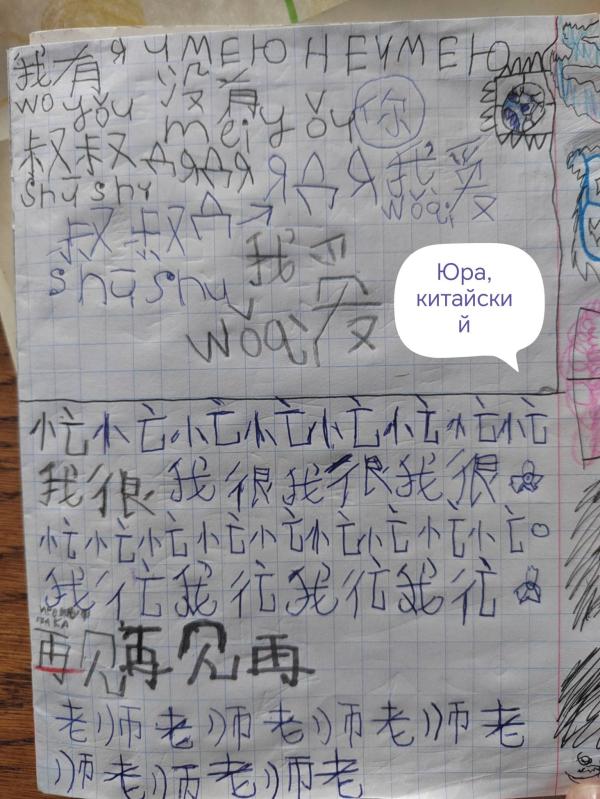 Я УМЕЮ НЕ УМЕЮ
我有 没有
wǒ yǒu méi yǒu 你
叔叔 ДЯДЯ ЯДЯ 我爱
shū shu wǒ ài
叔叔 ДЯ
shū shu 我爱
wǒ ài
Юра,
китайски
й
忙忙忙忙忙忙忙忙
我很我很我很我很
忙忙忙忙忙忙忙忙忙
我忙我忙我忙我忙
ПОКА
再见再见再
老师老师老师老师老
师老师老师老